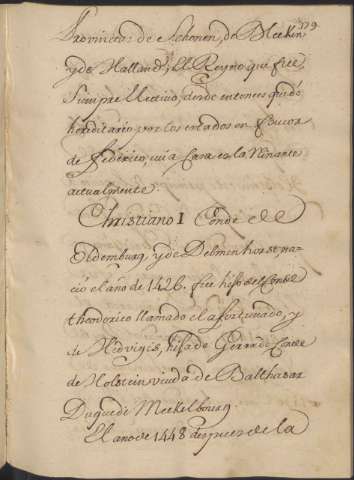 379
Provincias de Schonen, de Bleckin
y de Halland; El Reyno que fue
siempre Electivo, desde entonces quedó
hereditario por los estados en favor
de Federico, cuia Casa es la Reinante
actualmente.
Christiano I Conde de
Oldemburg, y de Delmenhorst na-
ció el año de 1426. fue hijo del Conde
theodorico llamado el afortunado, y
de Hidvigis, hija de Gerardo Conde
de Holstein viuda de Balthasar
Duque de Meckelbourg
El año de 1448 despues de la